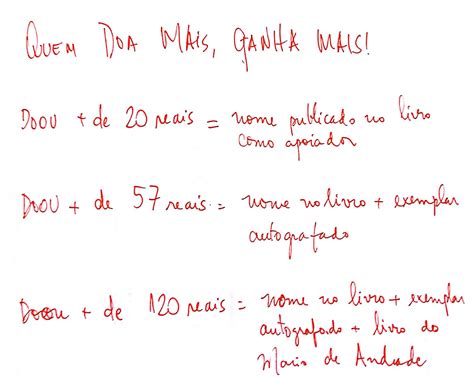 QUEM DOA MAIS, GANHA MAIS!
DOOU + de 20 reais = nome publicado no livro
como apoiador
DOOU + de 57 reais = nome no livro + exemplar
autografado
DOOU + de 120 reais = nome no livro + exemplar
autografado + livro do
Mario de Andrade